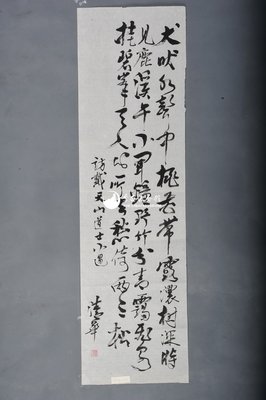 犬吠水聲中桃花帶露濃樹深時
見鹿溪午不聞鐘野竹分青靄飛泉
挂碧峰無人知所去愁倚兩三松
訪戴天山道士不遇